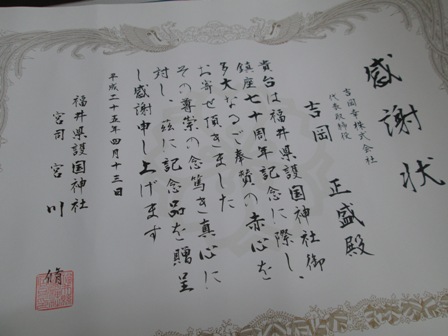 感謝状
吉岡幸株式会社
代表取締役
吉岡 正盛殿
貴台は福井県護国神社御
鎮座七十周年記念に際し、
多大なるご奉賛の赤心を
お寄せ頂きました
その尊崇の念篤き真心に
対し、茲に記念品を贈呈
し感謝申し上げます
平成二十五年四月十三日
福井県護国神社
宮司 宮川 脩